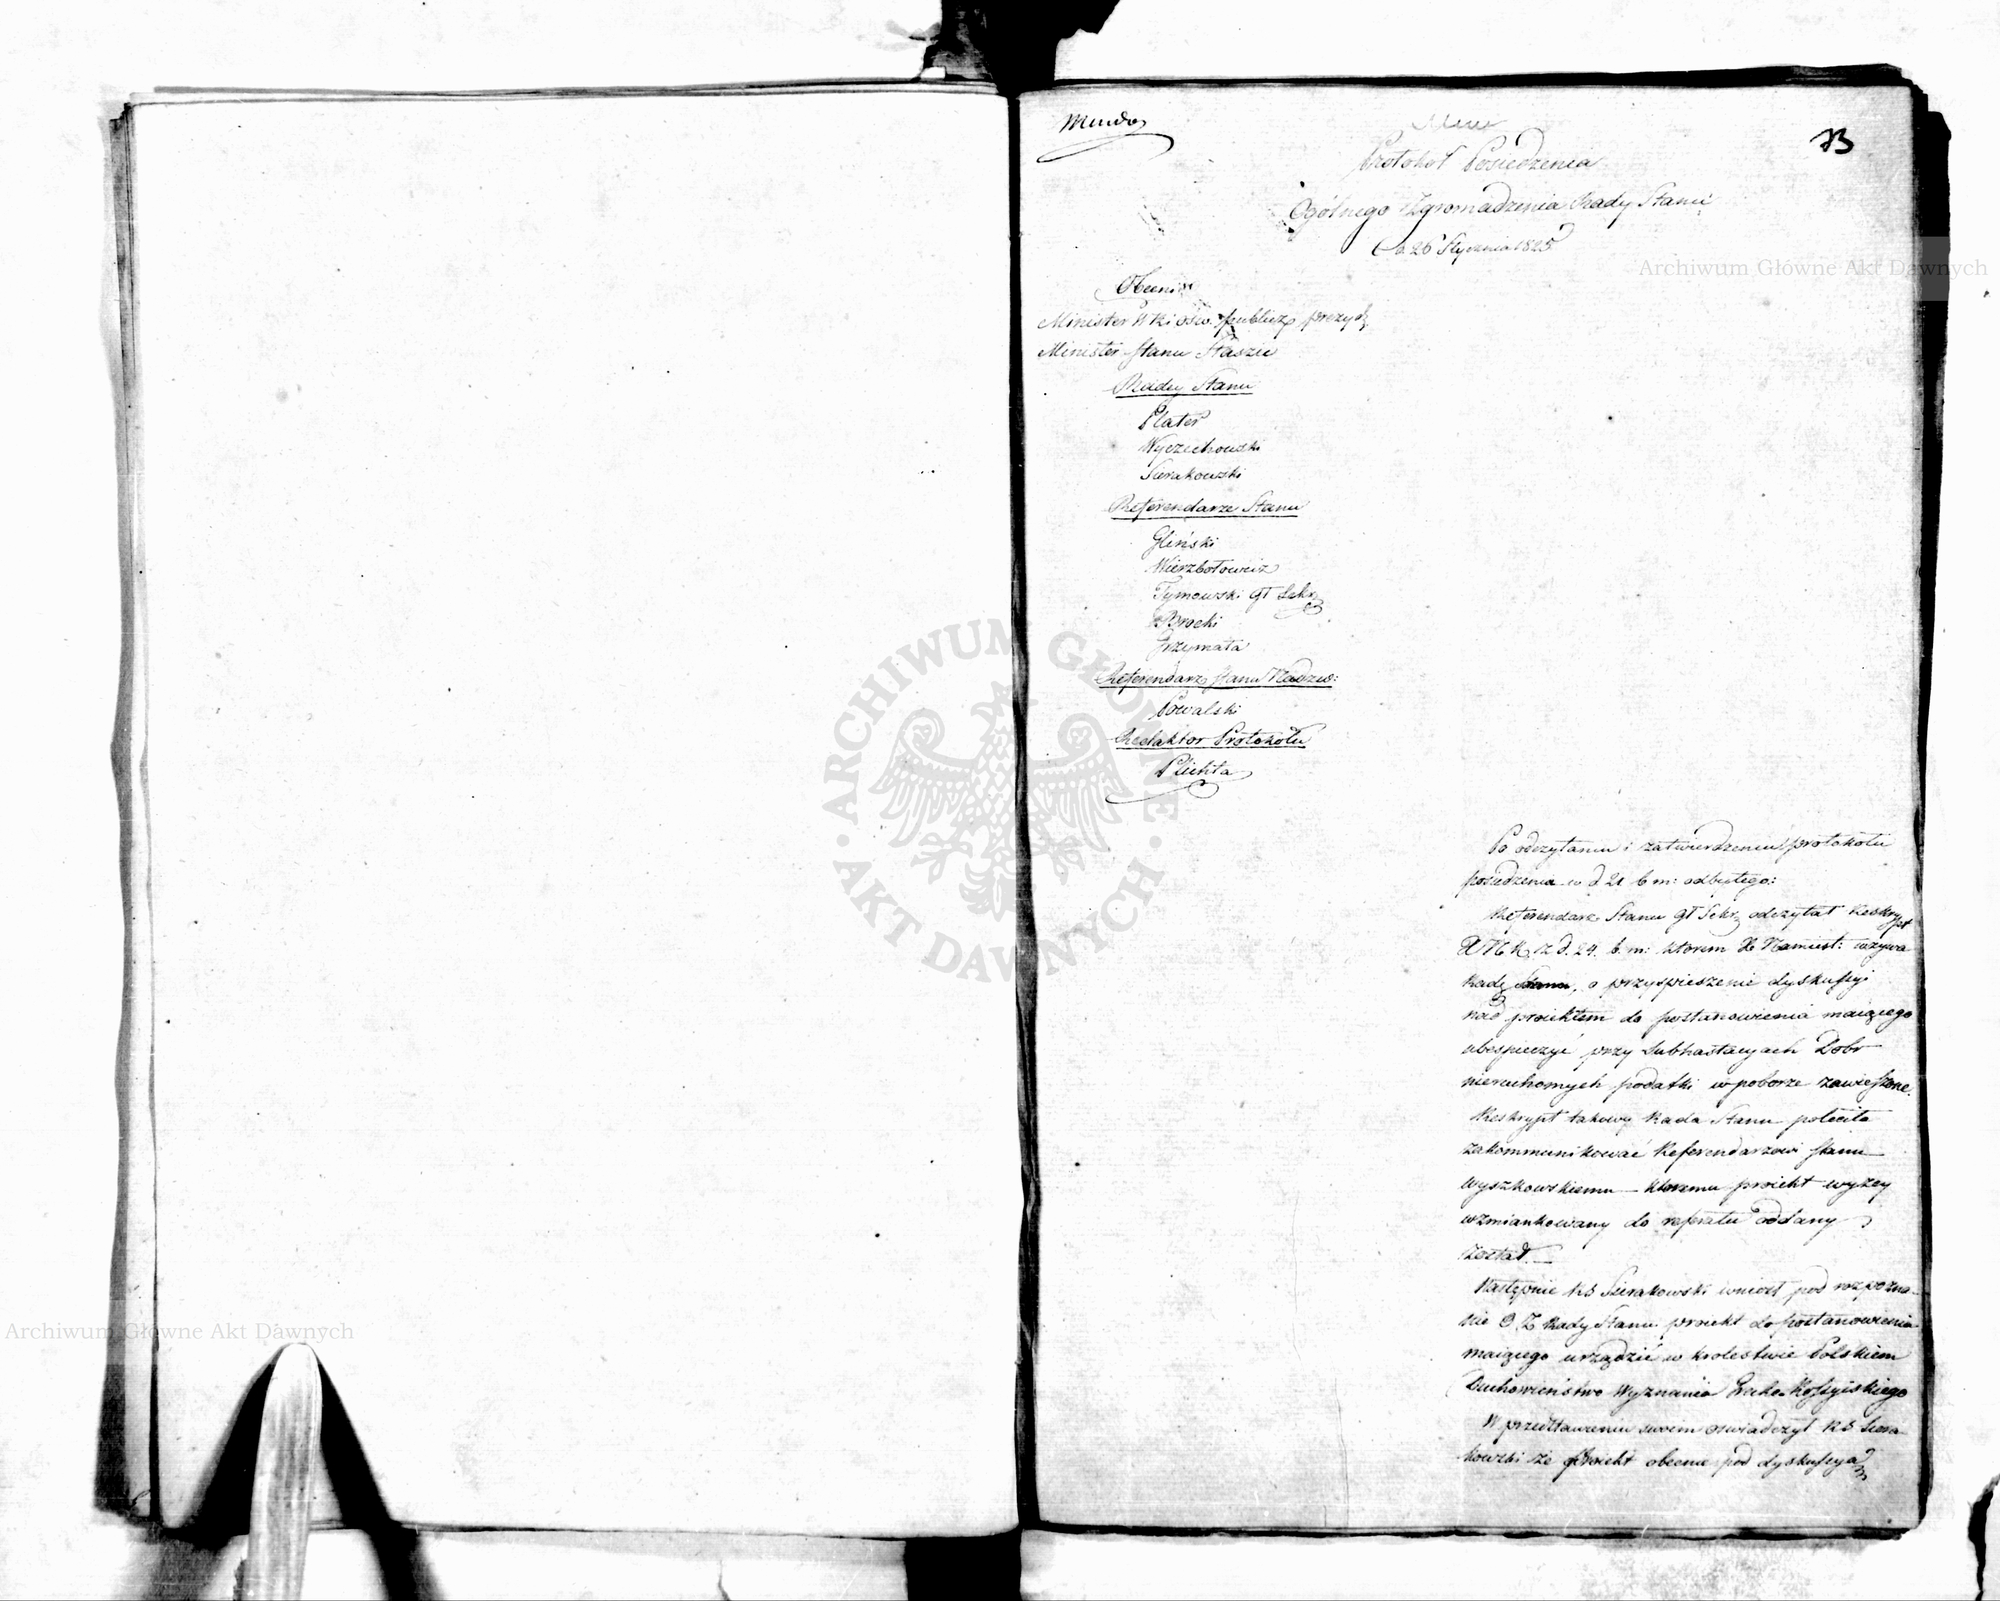 Mundo
73
Protokół Posiedzenia
Ogólnego Zgromadzenia Rady Stanu
d. 26 Stycznia 1825
Obecni
Minister W R i Ośw. publicz prezyd.
Minister Stanu Staszic
Radcy Stanu
Plater
Wyczechowski
Sierakowski
Referendarze Stanu
Gliński
Wierzbołowicz
Tymowski Gł Sekr
Brocki
Grzymała
Referendarz Stanu Nadzw:
Kowalski
Redaktor Protokołu
Plichta
Po odczytaniu i zatwierdzeniu protokołu
posiedzenia w d 21 b m: odbytego:
Referendarz Stanu Gł Sekr odczytał Reskrypt
X N K z d. 24. b. m: ktorem X Namiest: wzywa
Radę Stanu, o przyspieszenie dyskussyi
nad proiektem do postanowienia maiącego
ubespieczyć przy Subhastacyach Dobr
nieruchomych podatki w poborze zawieszone.
Reskrypt takowy Rada Stanu poleciła
zakommunikować Referendarzowi Stanu
Wyszkowskiemu ktoremu proiekt wyżey
wzmiankowany do referatu oddany
został.
Następnie RS Sierakowski wniosł pod rozpozna-
nie O Z Rady Stanu proiekt do postanowienia
maiącego urządzić w Krolestwie Polskiem
Duchowieństwo Wyznania Greko-Rossyiskiego
W przedstawieniu swoiem oswiadczył RS Siera-
kowski że Proiekt obecnie pod dyskussyą
Archiwum Główne Akt Dawnych
Archiwum Główne Akt Dawnych
ARCHIWUM GŁÓWNE · AKT DAWNYCH ·